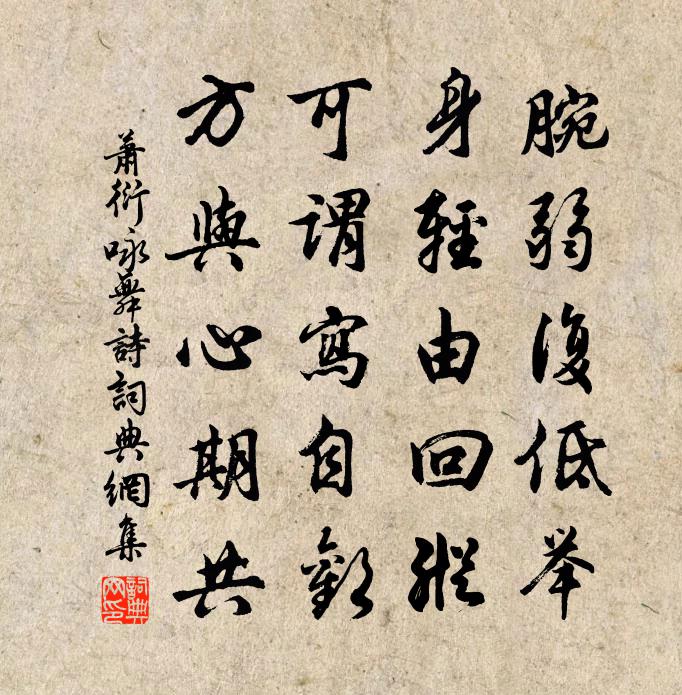 腕弱復低举
身輕由回縱
可謂寫自歡
方與心期共
蕭衍咏舞詩詞典網集
詞典网印